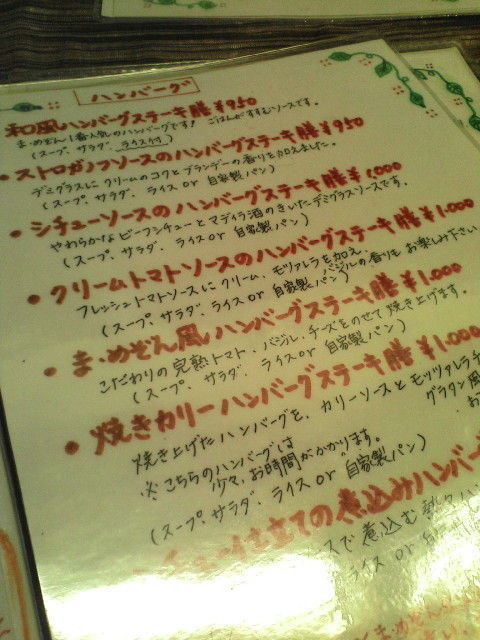 ハンバーグ
和風ハンバーグステーキ膳 ¥950
ま・めぞん1番人気のハンバーグです! ごはんがすすむソースです。
(スープ、サラダ、ライス付)
・ストロガノフソースのハンバーグステーキ膳 ¥950
デミグラスにクリームのコクとブランデーの香りを加えました。
(スープ、サラダ、ライス or 自家製パン)
・シチューソースのハンバーグステーキ膳 ¥1,000
やわらかなビーフシチューとマデイラ酒のきいたデミグラスソースです。
(スープ、サラダ、ライス or 自家製パン)
・クリームトマトソースのハンバーグステーキ膳 ¥1,000
フレッシュトマトソースにクリーム、モツァレラを加え、
バジルの香りもお楽しみ下さい
(スープ、サラダ、ライス or 自家製パン)
・ま・めぞん風ハンバーグステーキ膳 ¥1,000
こだわりの完熟トマト、バジル、チーズをのせて焼き上げます。
(スープ、サラダ、ライス or 自家製パン)
・焼きカリーハンバーグステーキ膳 ¥1,000
焼き上げたハンバーグを、カリーソースとモッツァレラチ
グラタン風
※こちらのハンバーグは
少々、お時間がかかります。
(スープ、サラダ、ライス or 自家製パン)
立ての煮込みハンバー
スで煮込む
ライス or